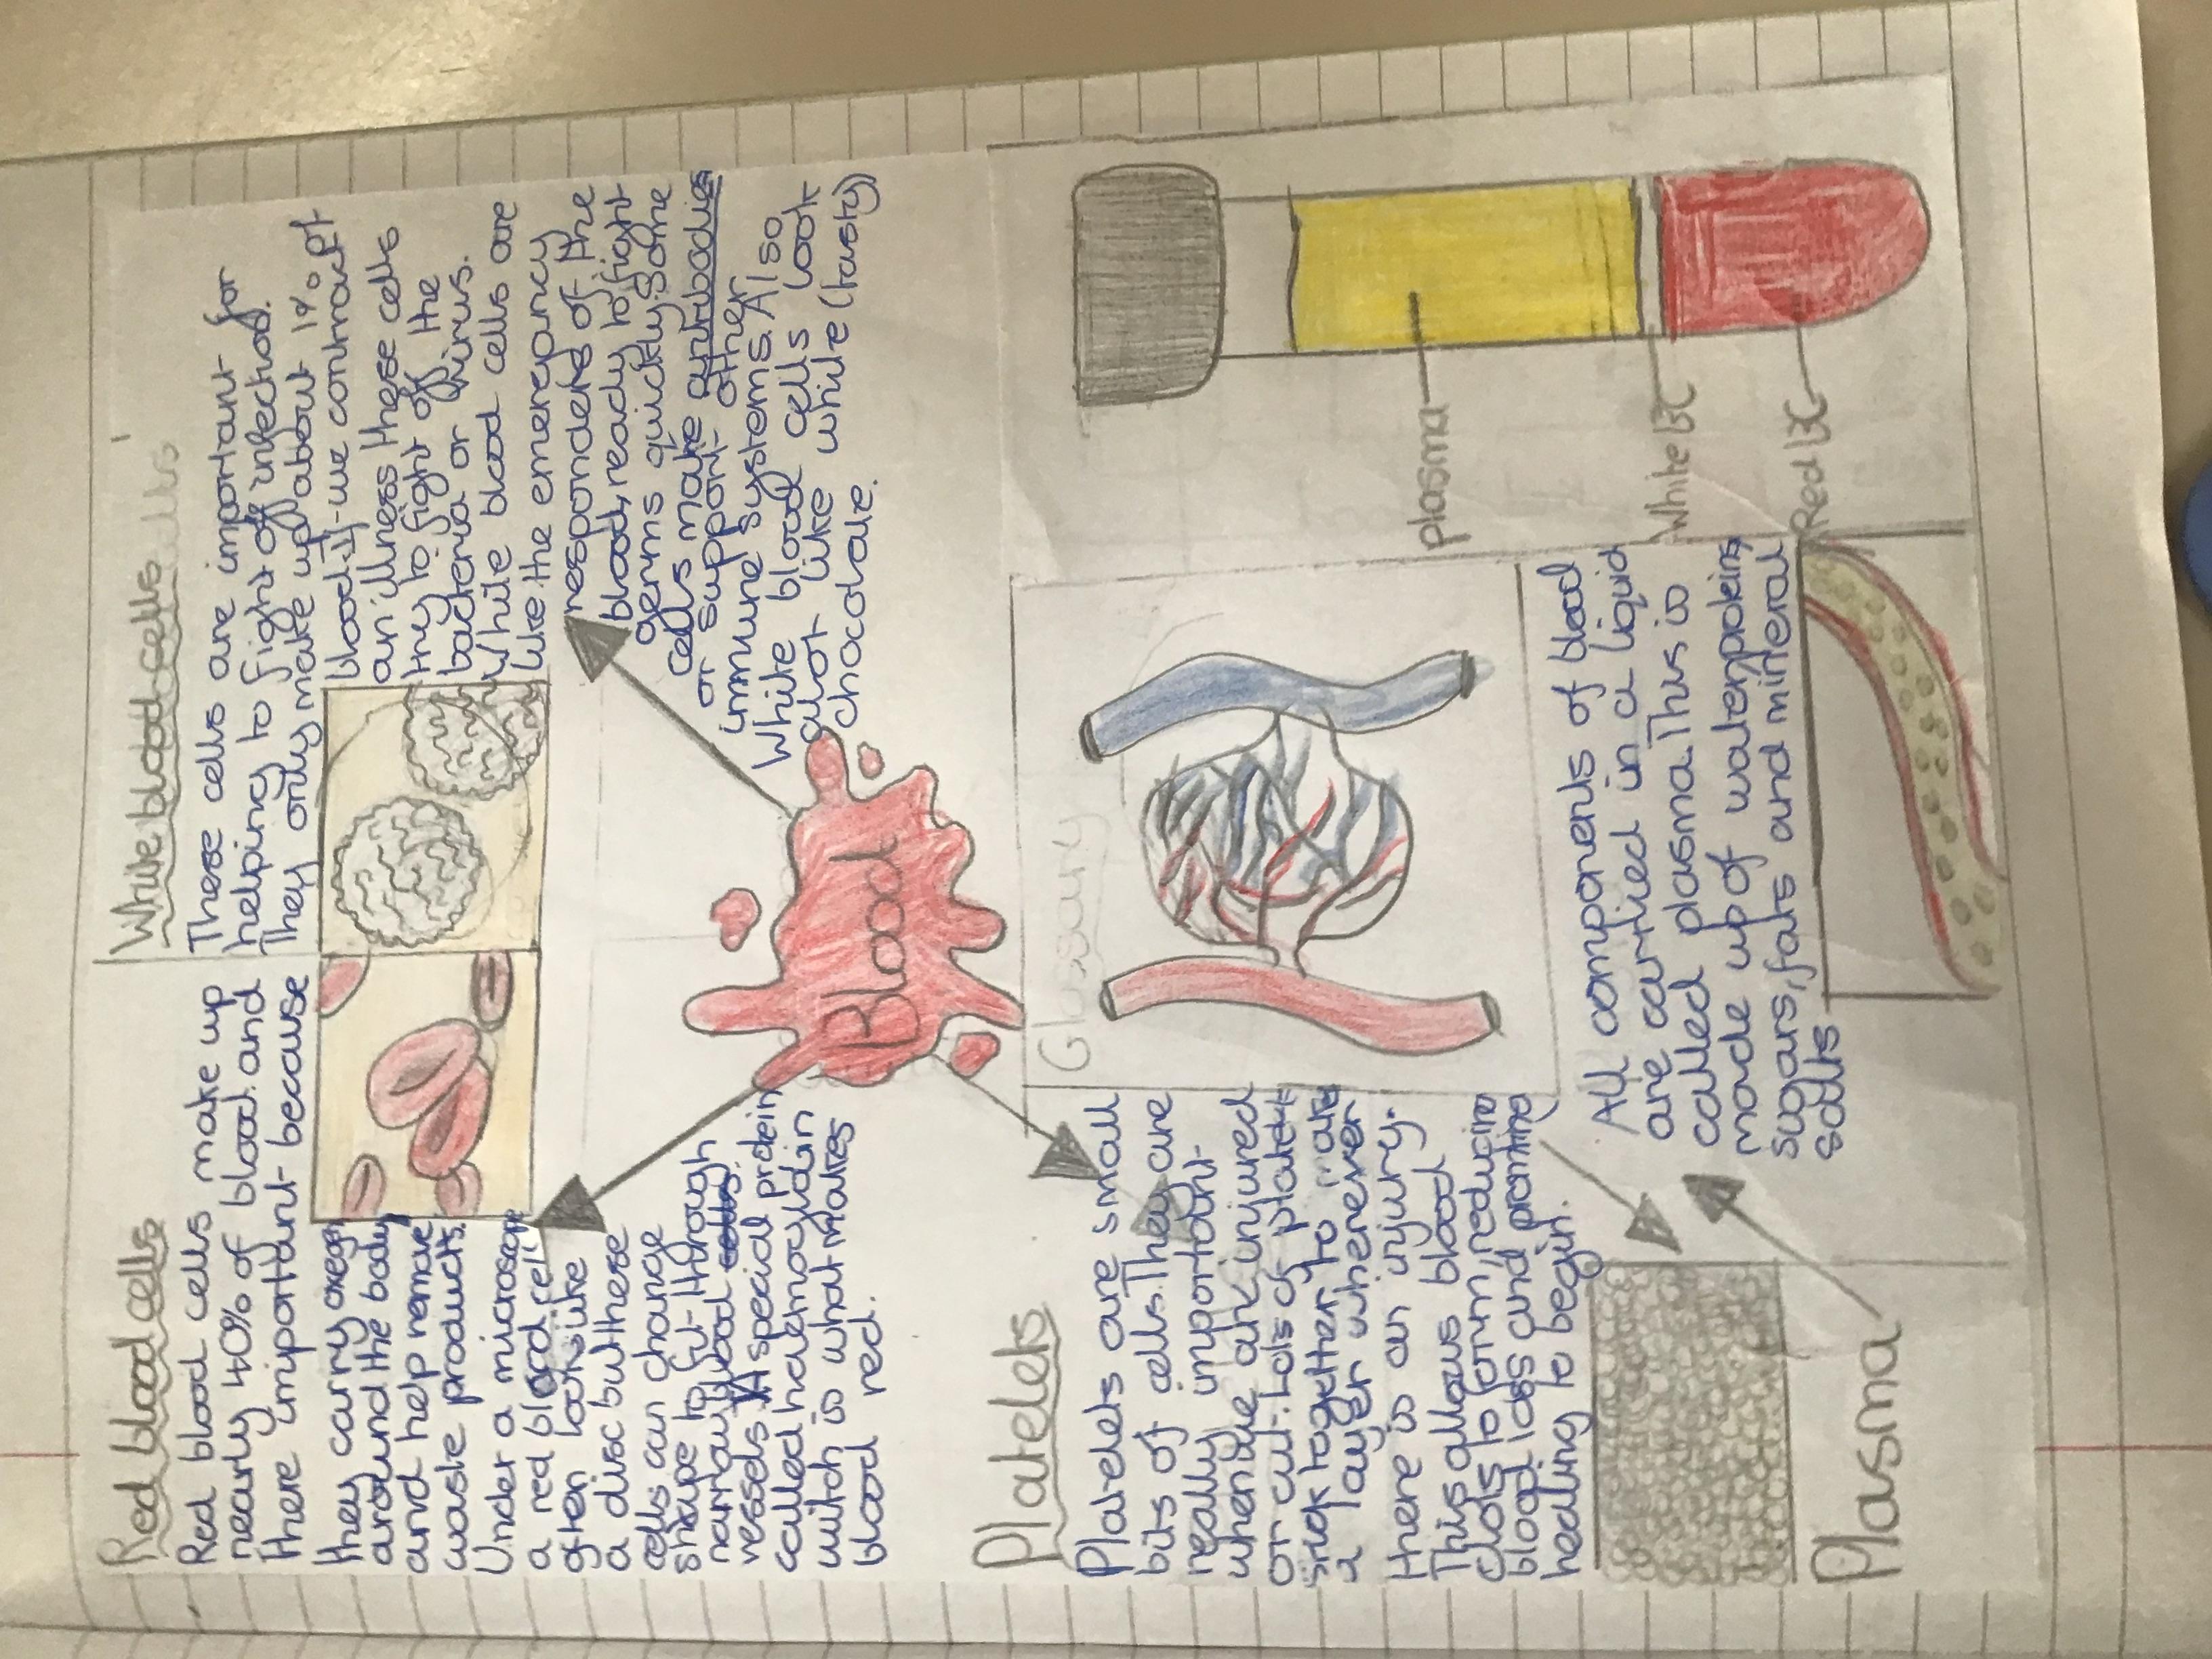 Red blood cells
Red blood cells make up
nearly 40% of blood. and
there important because
they carry oxegen
around the body
and help remove
waste products.
Under a microscope
a red blood cell
often looks like
a disc but these
cells can change
shape to fit through
narrow blood
vessels. A special protein
called haemoglobin
witch is what makes
blood red.
White blood cells
These cells are important for
helping to fight off infection.
They only make up about 1% of
blood. If we contract
an illness these cells
try to fight of the
bacteria or virus.
White blood cells are
like the emergancy
responders of the
blood, ready to fight
germs quickly. Some
cells make antibodies
or support other
immune systems. Also
White blood cells look
alot like white (tasty)
chocolate.
Blood
Platelets
Platelets are small
bits of cells. They are
really important
when we are injured
or cut. Lots of platelets
stick together to make
a layer whenever
there is an injury.
This allows blood
clots to form, reducing
blood loss and promting
healing to begin.
Glossary
plasma
White BC
Red BC
Plasma
All components of blood
are carried in a liquid
called plasma. This is
made up of water, proteins
sugars, fats and mineral
salts